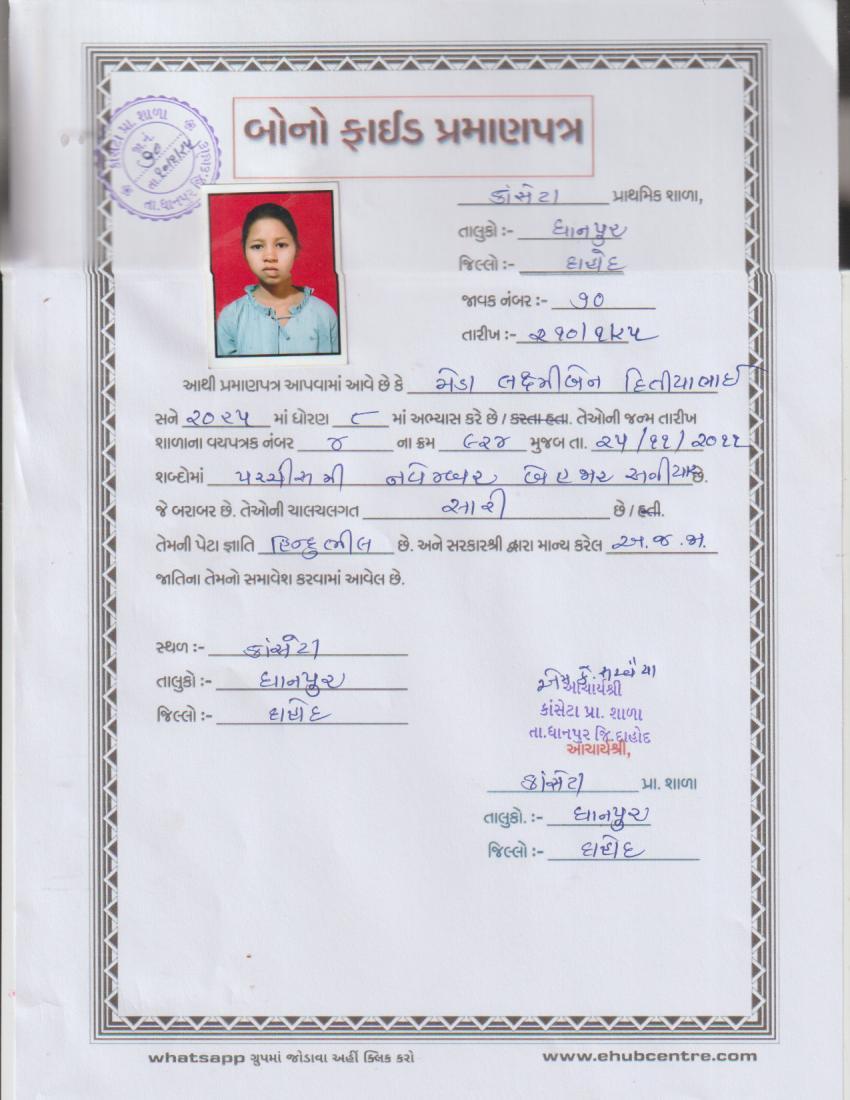 બોનો ફાઈડ પ્રમાણપત્ર
કાંસેટા પ્રા. શાળા
જા.નં.
૧૦
તા.ધાનપુર જિ.દાહોદ
કાંસેટા પ્રાથમિક શાળા,
તાલુકો :- ધાનપુર
જિલ્લો :- દાહોદ
જાવક નંબર :- ૧૦
તારીખ :-
આથી પ્રમાણપત્ર આપવામાં આવે છે કે મેડા લક્ષ્મીબેન હિતીયાભાઈ
સને ૨૦૨૫ માં ધોરણ ૮ માં અભ્યાસ કરે છે / કરતા હતા. તેઓની જન્મ તારીખ
શાળાના વયપત્રક નંબર ૪ ના ક્રમ ૯૨૪ મુજબ તા. ૨૫/૧૧/૨૦૧૧
શબ્દોમાં પચ્ચીસમી નવેમ્બર બે હજાર અગીયાર છે.
જે બરાબર છે. તેઓની ચાલચલગત સારી છે / હતી.
તેમની પેટા જ્ઞાતિ હિન્દુ ભીલ છે. અને સરકારશ્રી દ્વારા માન્ય કરેલ અ.જ.જા.
જાતિના તેમનો સમાવેશ કરવામાં આવેલ છે.
સ્થળ :- કાંસેટા
તાલુકો :- ધાનપુર
જિલ્લો :- દાહોદ
આચાર્યશ્રી
કાંસેટા પ્રા. શાળા
તા.ધાનપુર જિ.દાહોદ
આચાર્યશ્રી,
કાંસેટા પ્રા. શાળા
તાલુકો. :- ધાનપુર
જિલ્લો :- દાહોદ
whatsapp ગ્રુપમાં જોડાવા અહીં ક્લિક કરો www.ehubcentre.com